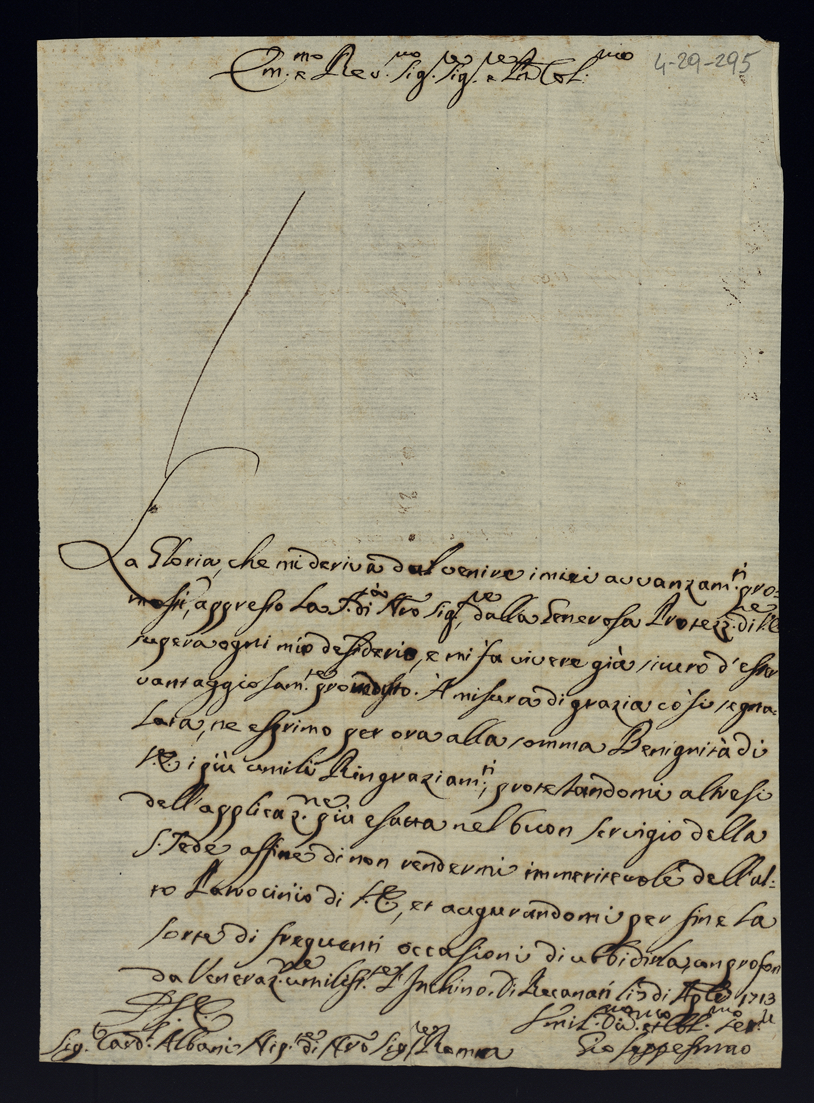 Em.mo e Rev.mo Sig.re Sig.re e Pron Col.mo
4-29-295
La Gloria, che mi deriva dal venire i miei avvanzam.ti pro=
mossi, appresso La S.tà di Nro Sig.re, dalla Generosa Protez.ne di V.E.
supera ogni mio desiderio, e mi fa vivere già sicuro d'esser
vantaggiosam.te promosso. À misura di grazia così segna=
lata, ne esprimo per ora alla somma Benignità di
V.E. i più umili Ringraziam.ti, protestandomi altresi
dell'applicaz.ne più esatta nel buon servigio della
S. Sede affine di non rendermi immeritevole dell'al=
to Patrocinio di V.E., et augurandomi per fine La
sorte di frequenti occasioni di ubbidirla, con profon
da Veneraz.ne umiliss.te L'Inchino. Di Recanati li 5 di Aple 1713
D. V. E.
Umil.mo Div.mo et Obl.mo Ser.
Sig.r Card. Albani Nip.te di Nro Sig.re Roma
Gio